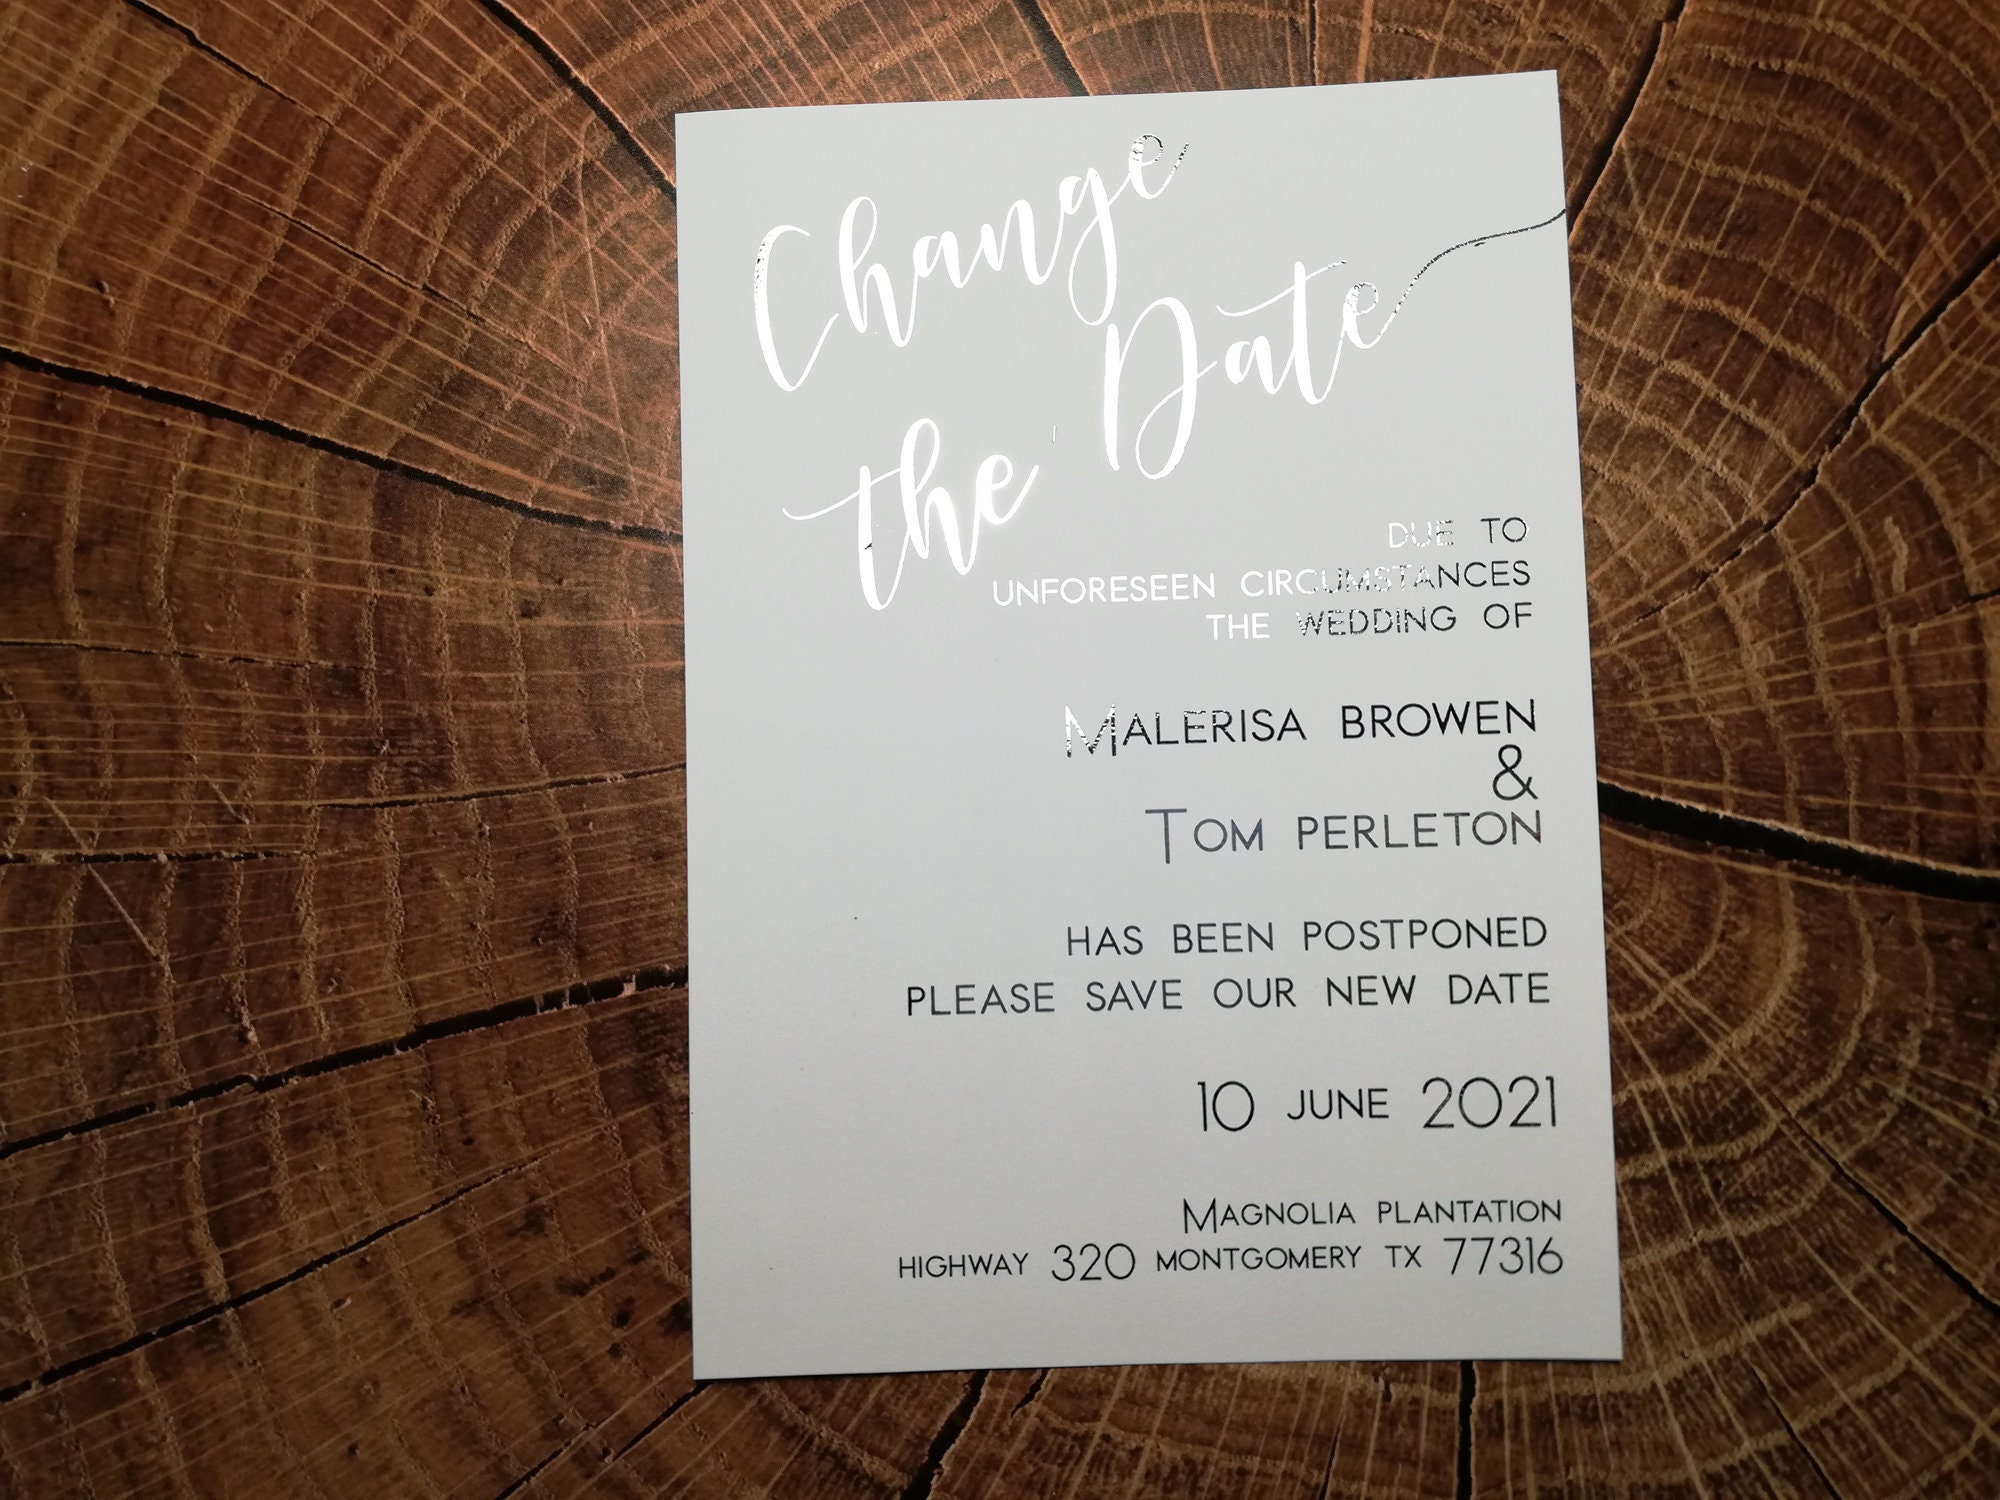 Change
the Date
DUE TO
UNFORESEEN CIRCUMSTANCES
THE WEDDING OF
MALERISA BROWEN
&
TOM PERLETON
HAS BEEN POSTPONED
PLEASE SAVE OUR NEW DATE
10 JUNE 2021
MAGNOLIA PLANTATION
HIGHWAY 320 MONTGOMERY TX 77316